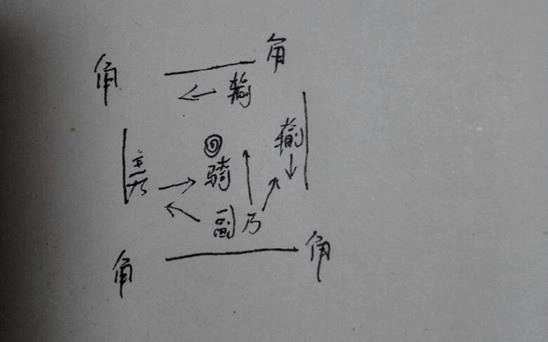 角 角
输
输
主
骑
副 乃
角 角